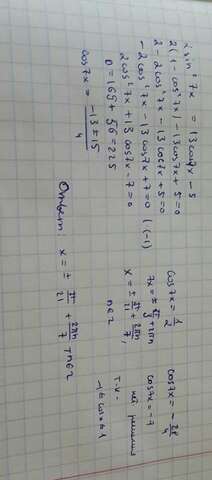 2sin²7x = 13cos7x - 5
2(1 - cos²7x) - 13cos7x + 5 = 0
2 - 2cos²7x - 13cos7x + 5 = 0
- 2cos²7x - 13cos7x + 7 = 0 | (-1)
2cos²7x + 13cos7x - 7 = 0
D = 169 + 56 = 225
cos7x = (-13 ± 15)/4
cos7x = 1/2
7x = ± π/3 + 2πn
x = ± π/21 + 2πn/7,
n∈z
cos7x = - 28/4
cos7x = -7
нет решения
т.к.
-1 ≤ cosx ≤ 1
Ответ: x = ± π/21 + 2πn/7, n∈z